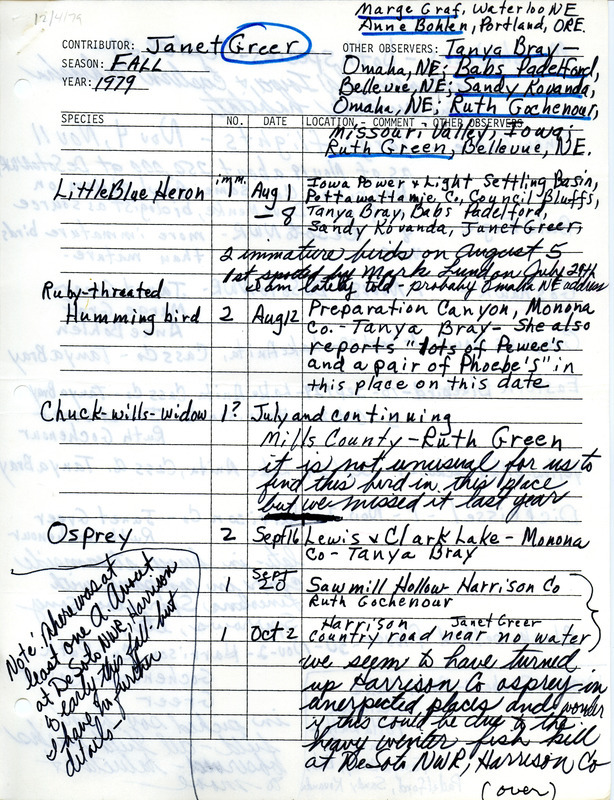 12/4/79
Marge Graf, Waterloo NE
Anne Bohlen, Portland, ORE.
CONTRIBUTOR: Janet Greer
OTHER OBSERVERS: Tanya Bray-
SEASON: FALL
Omaha, NE; Babs Padelford,
YEAR: 1979
Bellevue, NE; Sandy Kovanda,
Omaha, NE; Ruth Gochenour,
SPECIES NO. DATE LOCATION, COMMENT - OTHER OBSERVERS
Missouri Valley, Iowa;
Ruth Green, Bellevue, NE.
Little Blue Heron imm. Aug 1 Iowa Power & Light Settling Basin,
-8 Pottawattamie Co, Council Bluffs,
Tanya Bray, Babs Padelford,
Sandy Kovanda, Janet Greer,
2 immature birds on August 5
1st spotted by Mark Lundon July 29th
I am lately told, probably Omaha NE address
Ruby-throated
Humming bird 2 Aug 12 Preparation Canyon, Monona
Co. - Tanya Bray - She also
reports "lots of Pewee's
and a pair of Phoebe's" in
this place on this date
Chuck-wills-widow 1? July and continuing
Mills County - Ruth Green
it is not unusual for us to
find this bird in this place
but we missed it last year
Osprey 2 Sept 16 Lewis & Clark Lake - Monona
Co - Tanya Bray
1 Sept 20 Sawmill Hollow Harrison Co
Ruth Gochenour
1 Oct 2 Harrison Janet Greer
country road near no water
we seem to have turned
up Harrison Co osprey in
unexpected places and wonder
if this could be due to the
heavy winter fish kill
at DeSoto NWR, Harrison Co
(over)
Note: there was at
least one A. Avocet
at DeSoto NWR, Harrison
Co early this fall but
I have no further
details-